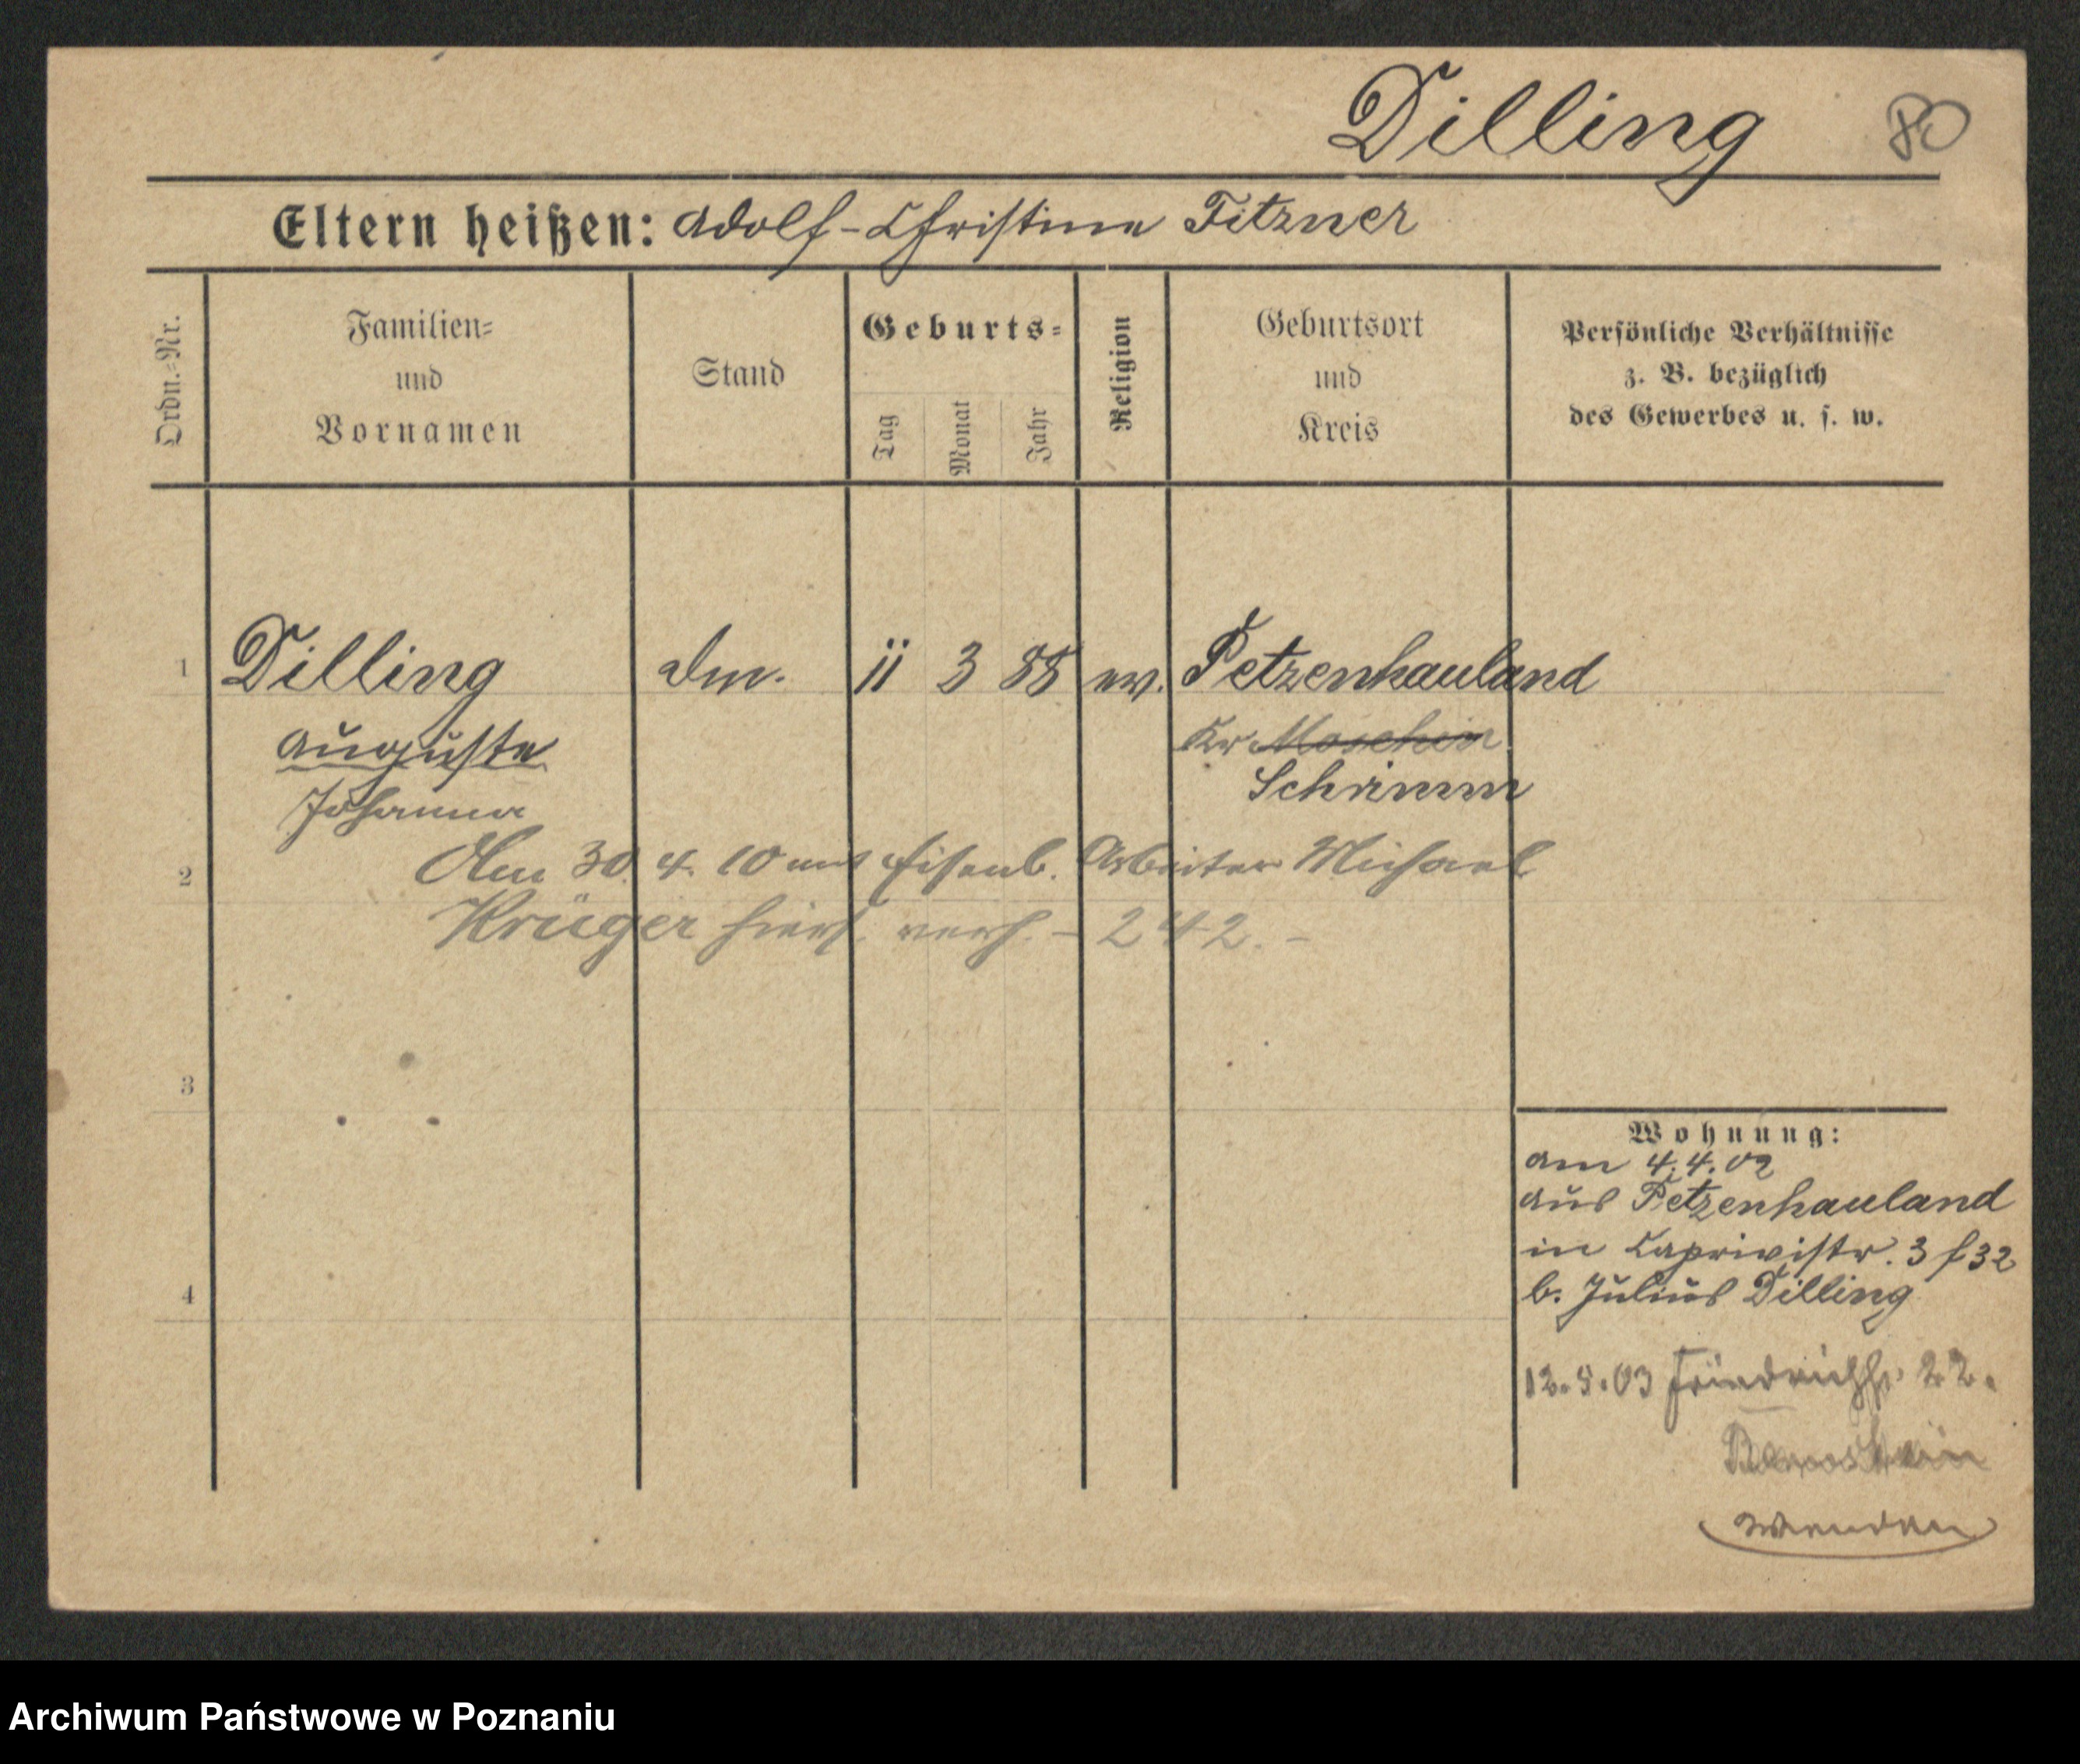 Dilling 80
Eltern heißen: Adolf - Christine Fitzner
Ordn.-Nr.
Familien-
und
Vornamen
Stand
Geburts-
Tag
Monat
Jahr
Religion
Geburtsort
und
Kreis
Persönliche Verhältnisse
z. B. bezüglich
des Gewerbes u. s. w.
1 Dilling 11 3 88 ev. Petzenhauland
Auguste Kr Moschin
Johanna Schrimm
2 Am 30. 4. 10 mit Eisenb. Arbeiter Michael
Krüger hier verh. - 242. -
3
4
Wohnung:
am 4.4.02
aus Petzenhauland
in Caprivistr. 3 f 32
b. Julius Dilling
12.5.03 22.
wenden
Archiwum Państwowe w Poznaniu